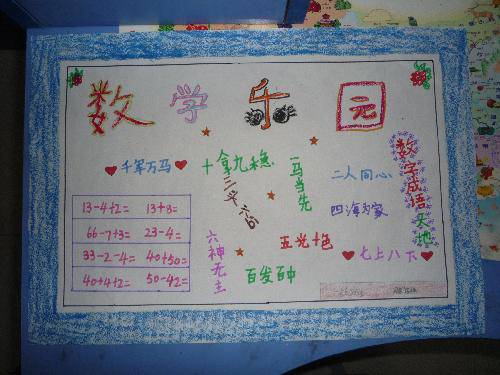 数学乐园
千军万马
十拿九稳
一马当先
二人同心
数字成语天地
三心二意
四海为家
13-4+2= 13+8=
66-7+3= 23-4=
33-2-4= 40+50=
40+4+2= 50-42=
六神无主
五光十色
七上八下
百发百中